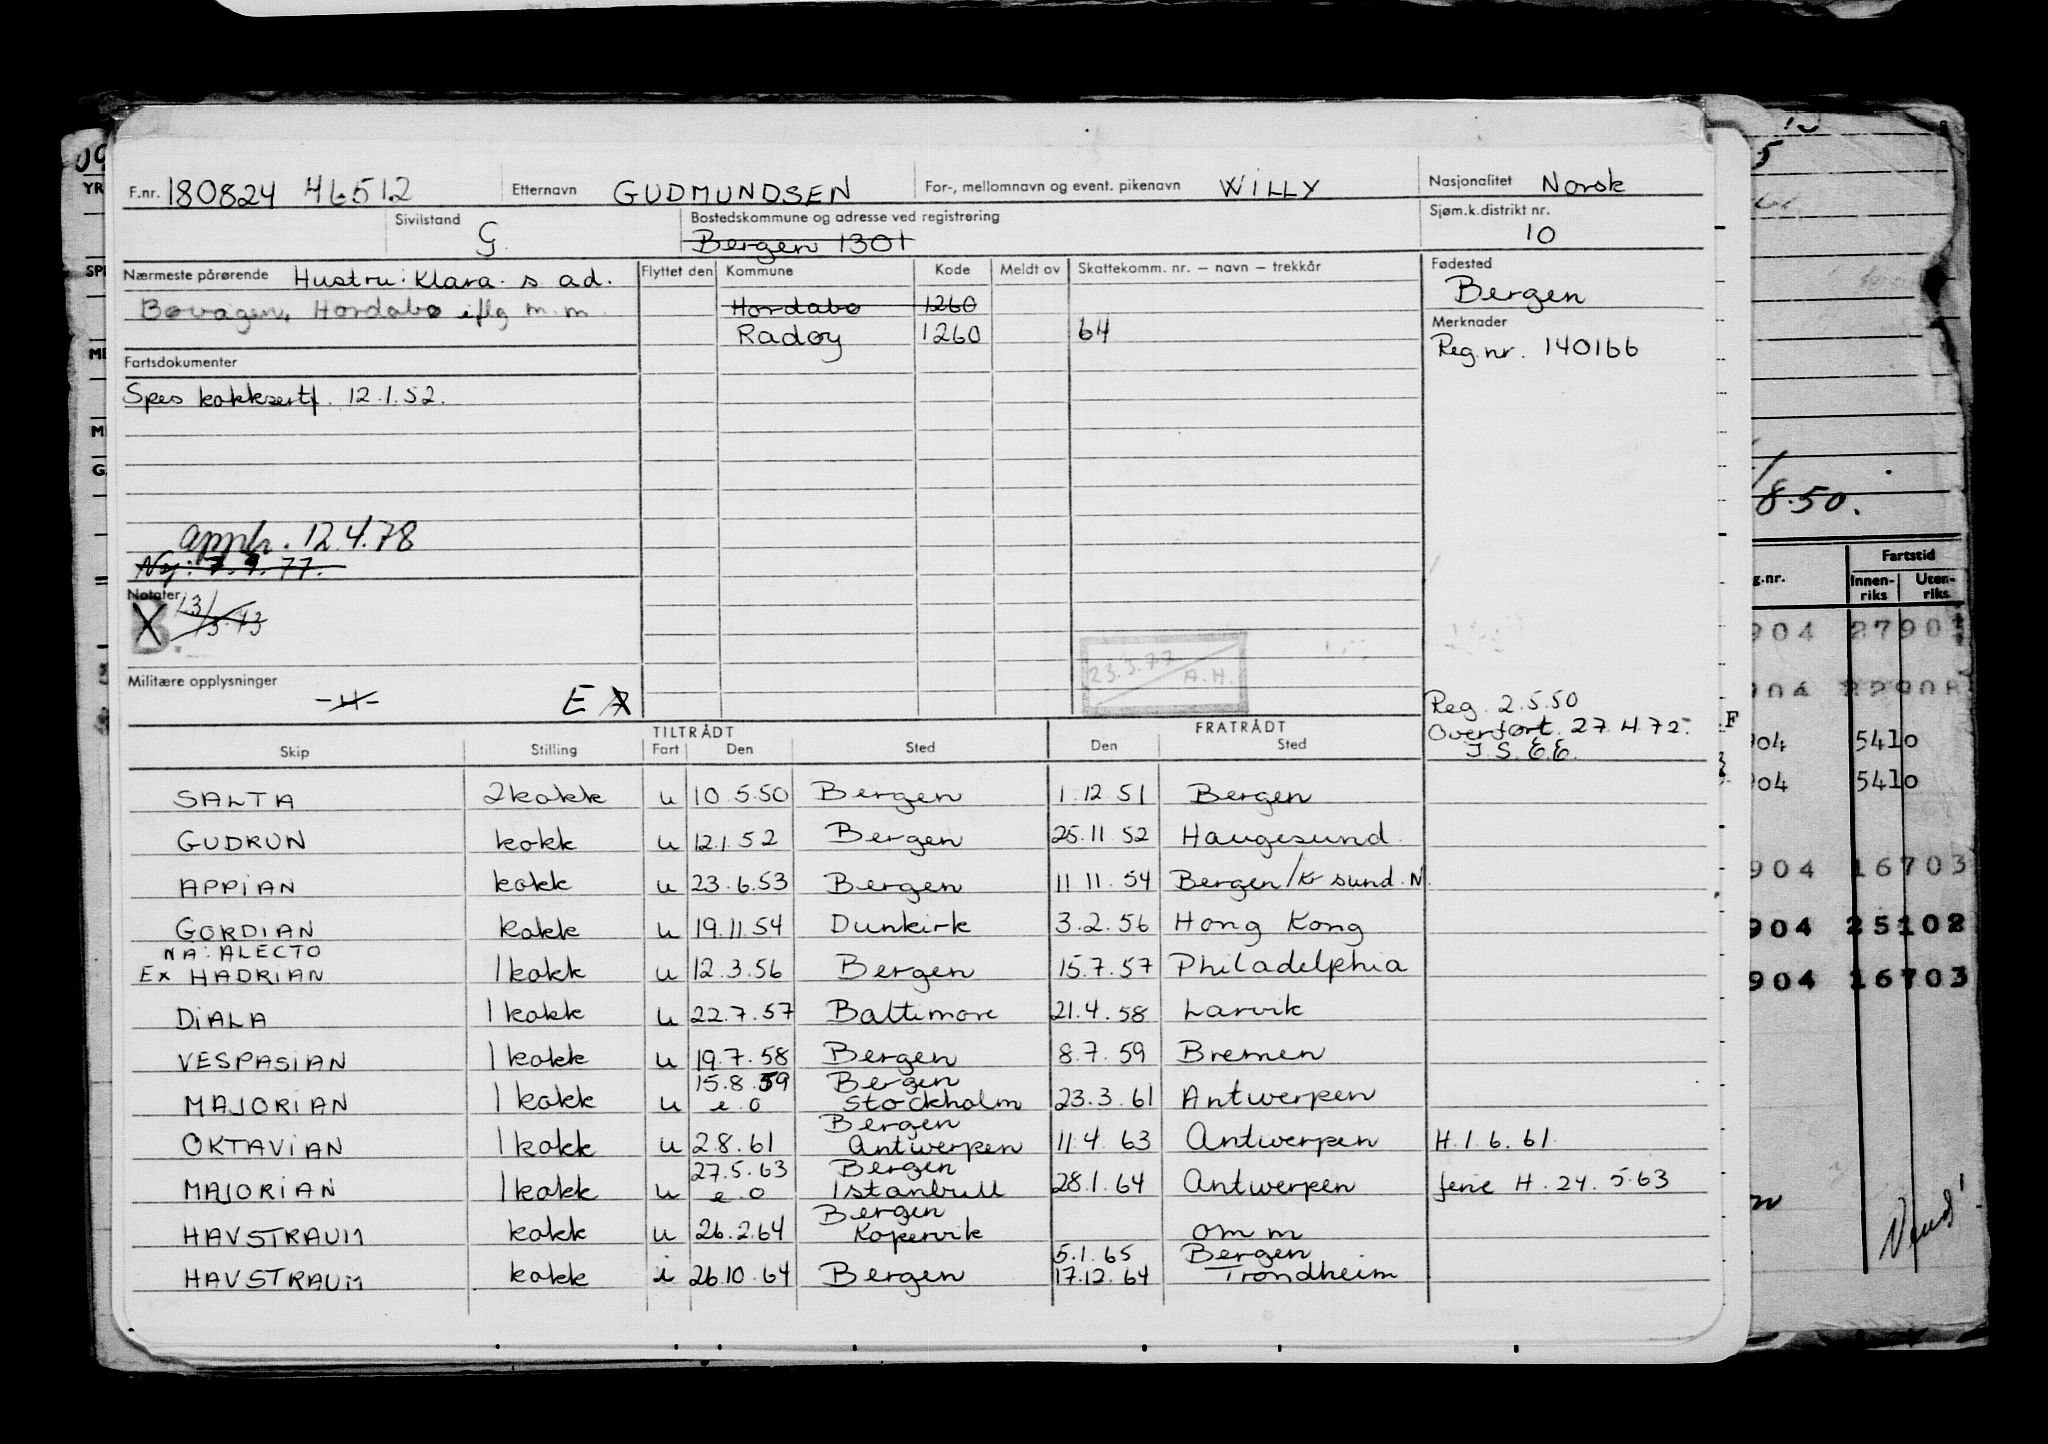 F.nr. 180824 46512 Etternavn GUDMUNDSEN For-, mellomnavn og event. pikenavn WILLY Nasjonalitet Norsk
Sivilstand G. Bostedskommune og adresse ved registrering Bergen 1301 Sjøm.k.distrikt nr. 10
Nærmeste pårørende Hustru: Klara s. ad. Flyttet den Kommune Kode Meldt av Skattekomm. nr. – navn – trekkår Fødested Bergen
Bøvågen, Hordabø iflg m.m. Hordabø 1260
Radøy 1260 64
Merknader
Reg.nr. 140166
Fartsdokumenter
Spes kokksertf. 12.1.52.
12.4.78
Ny: 7.9.77.
Notater
B.
Militære opplysninger E
23.3.77 A.H.
Reg. 2.5.50
Overført 27.4.72
TILTRÅDT FRATRÅDT
Skip Stilling Fart Den Sted Den Sted
SALTA 2kokk u 10.5.50 Bergen 1.12.51 Bergen
GUDRUN kokk u 12.1.52 Bergen 25.11.52 Haugesund.
APPIAN kokk u 23.6.53 Bergen 11 11.54 Bergen/Kr sund.N.
GORDIAN kokk u 19.11.54 Dunkirk 3.2.56 Hong Kong
NA: ALECTO
Ex HADRIAN 1kokk u 12.3.56 Bergen 15.7.57 Philadelphia
DIALA 1kokk u 22.7.57 Baltimore 21.4.58 Larvik
VESPASIAN 1kokk u 19.7.58 Bergen 8.7.59 Bremen
15.8.59 Bergen
MAJORIAN 1kokk u e.o Stockholm 23.3.61 Antwerpen
Bergen
OKTAVIAN 1kokk u 2.8.61 Antwerpen 11.4.63 Antwerpen H.1.6.61.
27.5.63 Bergen
MAJORIAN 1kokk u e.o Istanbull 28.1.64 Antwerpen ferie H.24.5.63
Bergen
HAVSTRAUM kokk u 26.2.64 Kopervik om m
5.1.65 Bergen
HAVSTRAUM kokk i 26.10.64 Bergen 17.12.64 Trondheim
5
8.50.
g.nr. Fartstid
Innen-riks Uten-riks
904 27901
904 22908
904 5410
904 5410
904 16703
904 25102
904 16703